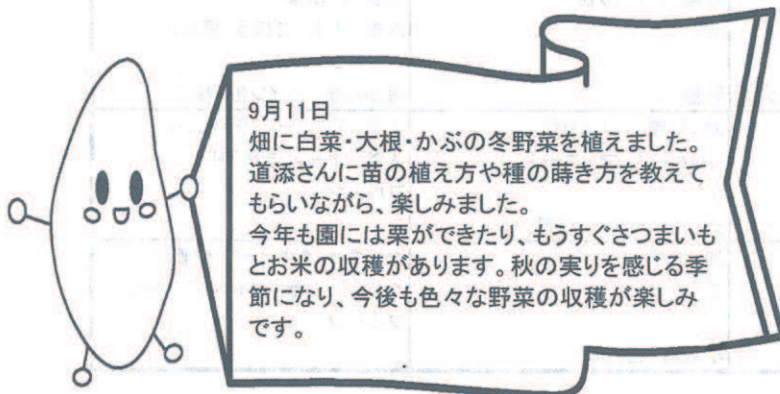 9月11日
畑に白菜・大根・かぶの冬野菜を植えました。
道添さんに苗の植え方や種の蒔き方を教えて
もらいながら、楽しみました。
今年も園には栗ができたり、もうすぐさつまいも
とお米の収穫があります。秋の実りを感じる季
節になり、今後も色々な野菜の収穫が楽しみ
です。